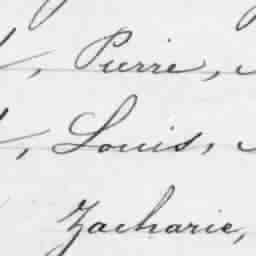 , Pierre,
, Louis,
Zacharie,